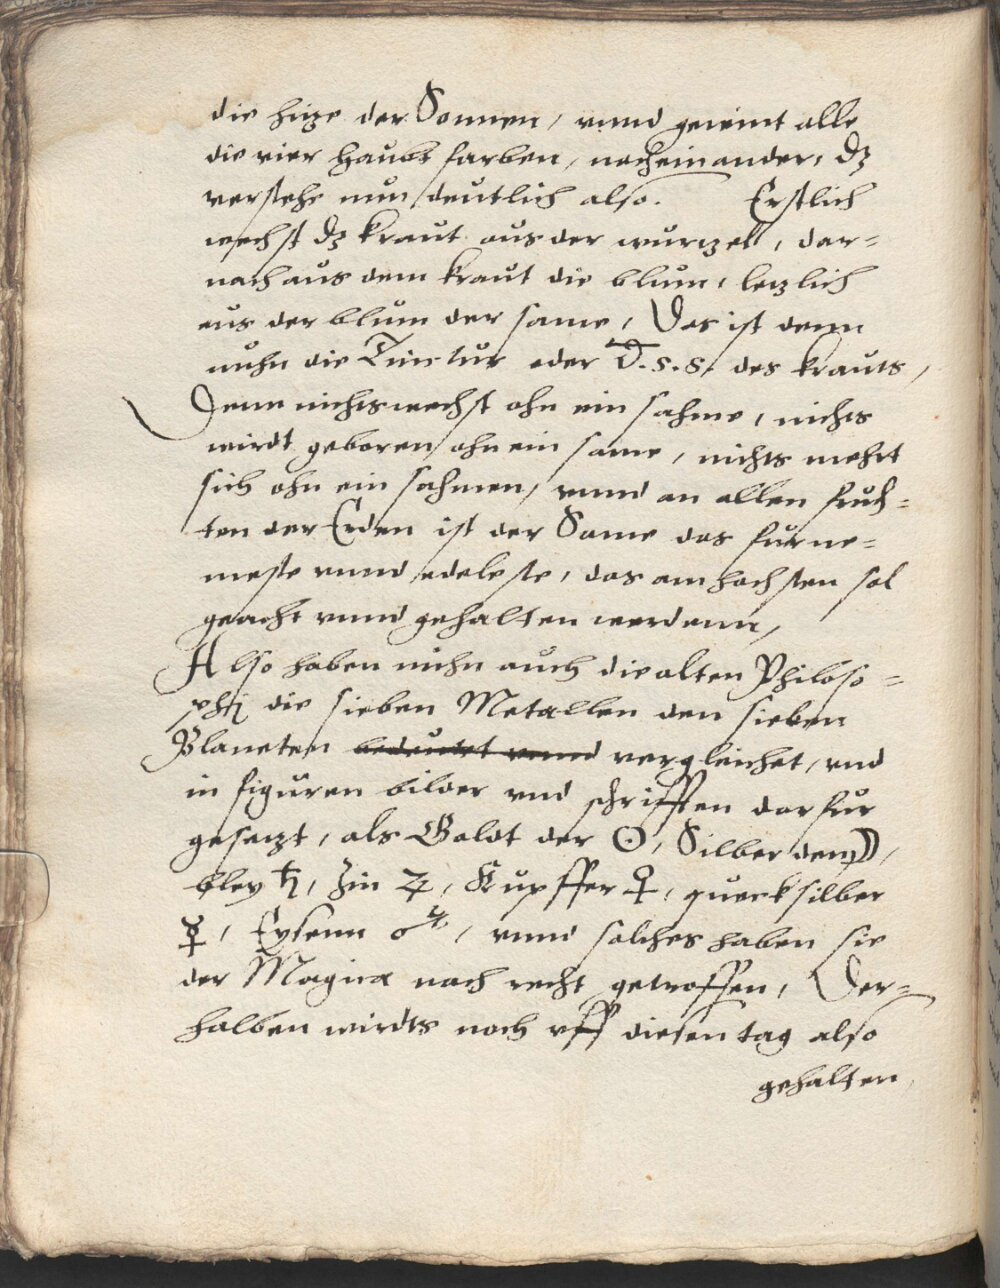 die hize der Sonnen, vnnd gewint alle
die vier haubt farben, nacheinander, dz
verstehe nun deutlich also. Erstlich
wechst dz kraut aus der wurzel, dar=
nach aus dem kraut die blum, lezlich
aus der blum der same, Das ist denn
nuhn die Tinctur oder D.s.s. des krauts,
Denn nichts wechst ohn ein sahme, nichts
wirdt geboren ohn ein same, nichts mehrt
sich ohn ein sahmen, vnnd an allen fruch=
ten der Erden ist der Same das furne=
meste vnnd edeleste, das am hochsten sol
geacht vnnd gehalten werdenn,
Also haben nuhn auch die alten Philoso=
phi die sieben Metallen den sieben
Planeten bedeutet vnnd vergleichet, vnd
in figuren bilder vnd schrifften darfur
gesezt, als Goldt der ☉, Silber den ☽,
bley ♄, Zin ♃, Kupffer ♀, quecksilber
☿, Eysenn ♂, vnnd solches haben sie
der Magica nach recht getroffen, Der=
halben wirdts noch vff diesen tag also
gehalten,